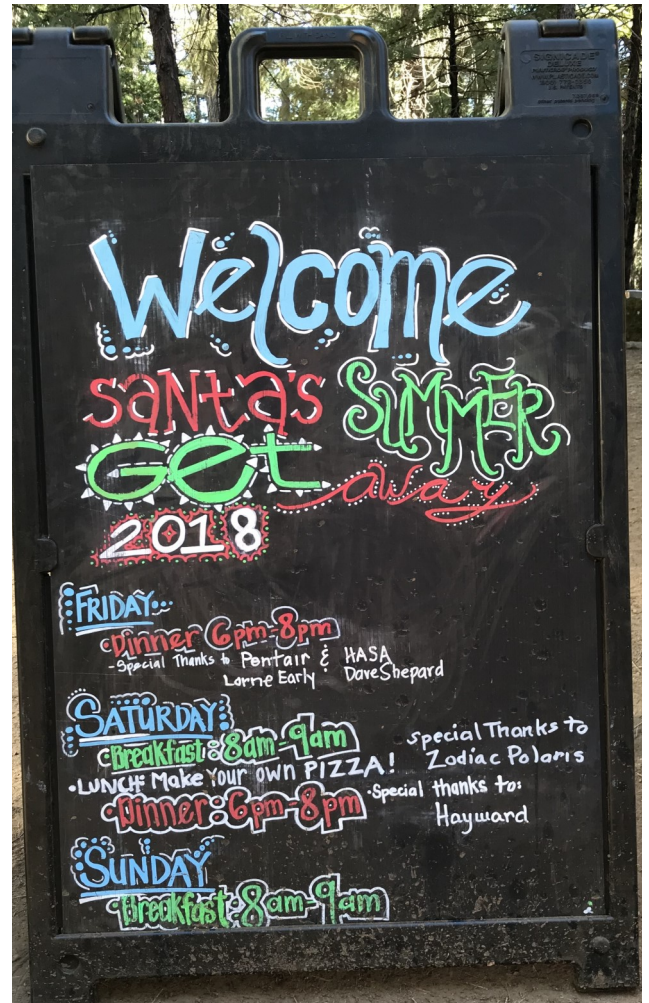 SIGNICADE
DELUXE
Welcome
SANTA'S SUMMER
GET away
2018
FRIDAY...
•Dinner 6pm-8pm
-Special Thanks to Pentair & HASA
Lorne Early Dave Shepard
SATURDAY:
•Breakfast: 8am-9am
Special Thanks to
Zodiac Polaris
•LUNCH: Make Your own PIZZA!
•Dinner: 6pm-8pm
•Special thanks to:
Hayward
SUNDAY
•Breakfast: 8am-9am